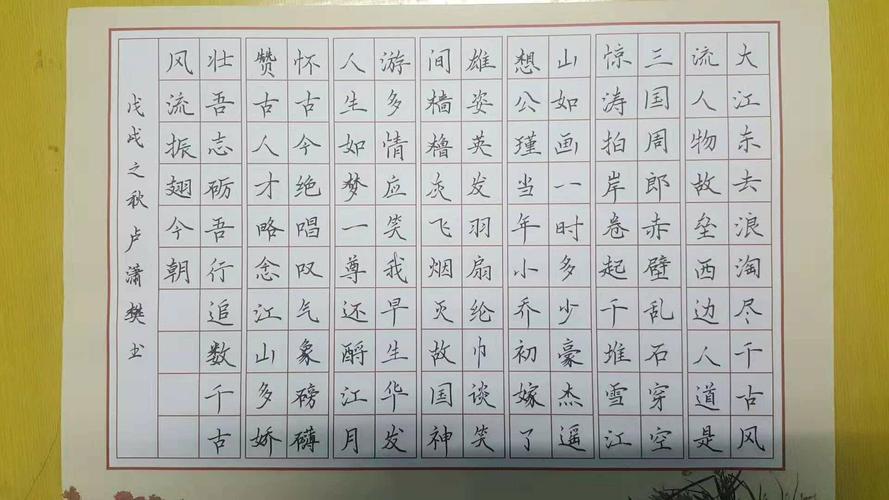 大江东去浪淘尽千古风
流人物故垒西边人道是
三国周郎赤壁乱石穿空
惊涛拍岸卷起千堆雪江
山如画一时多少豪杰遥
想公瑾当年小乔初嫁了
雄姿英发羽扇纶巾谈笑
间樯橹灰飞烟灭故国神
游多情应笑我早生华发
人生如梦一尊还酹江月
怀古今绝唱叹气象磅礴
赞古人才略念江山多娇
壮吾志砺吾行追数千古
风流振翅今朝
戊戌之秋卢潇樊书